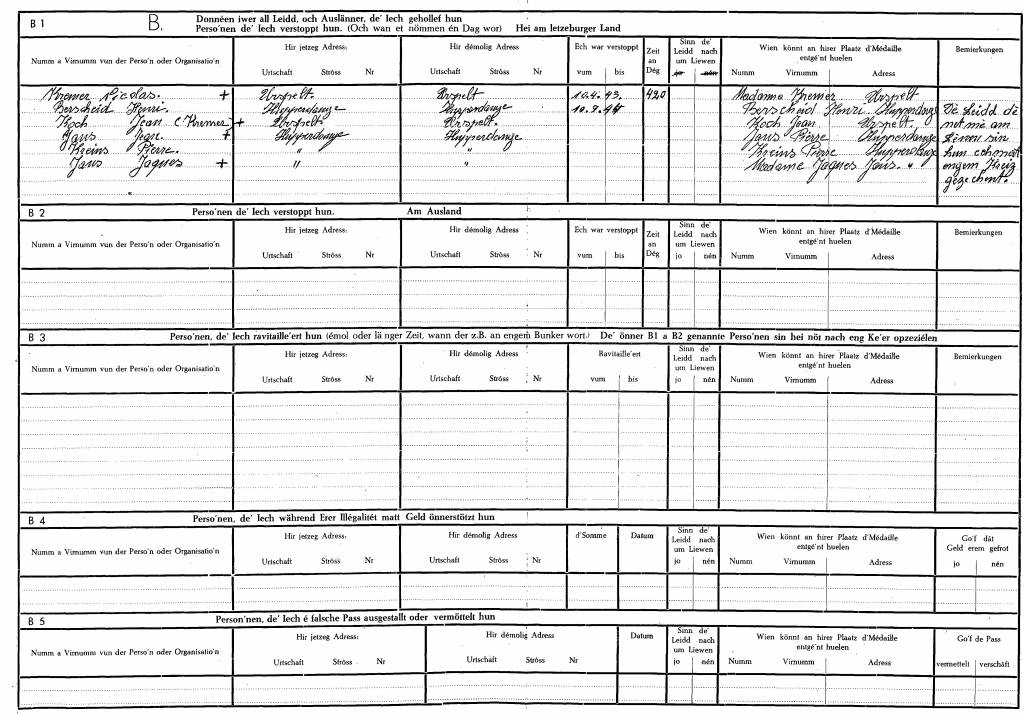 B 1 B. Donnéen iwer all Leidd, och Auslänner, de' Iech gehollef hun
Perso'nen de' Iech verstoppt hun. (Och wan et nömmen én Dag wor) Hei am letzeburger Land
Numm a Virnumm vun der Perso'n oder Organisatio'n
Hir jetzeg Adress:
Urtschaft Ströss Nr
Hir démolig Adress:
Urtschaft Ströss Nr
Ech war verstoppt
vum bis
Zeit an Dég
Sinn de' Leidd nach um Liewen
jo nén
Wien könnt an hirer Plaatz d'Médaille entgé'nt huelen
Numm Virnumm Adress
Bemierkungen
Kremer Nicolas. + Urspelt. Urspelt 10.4.43. 420 Madame Kremer Urspelt
Berscheid Henri. Hupperdange Hupperdange 10.9.44 Berscheid Henri Hupperdange Dè Leidd dè
Koch Jean (Kremer) + Urspelt Urspelt. Koch Jean Urspelt. net mé am
Jans Jean. + Hupperdange Hupperdange Jans Pierre Hupperdange Liewen sin
Kreins Pierre. " " Kreins Pierre Hupperdange hun ech mat
Jans Jaques + " " Madame Jaques Jans. " engem Kreiz
gezechent.
B 2 Perso'nen de' Iech verstoppt hun. Am Ausland
Numm a Virnumm vun der Perso'n oder Organisatio'n
Hir jetzeg Adress:
Urtschaft Ströss Nr
Hir démolig Adress:
Urtschaft Ströss Nr
Ech war verstoppt
vum bis
Zeit an Dég
Sinn de' Leidd nach um Liewen
jo nén
Wien könnt an hirer Plaatz d'Médaille entgé'nt huelen
Numm Virnumm Adress
Bemierkungen
B 3 Perso'nen, de' Iech ravitaille'ert hun (émol oder länger Zeit, wann der z.B. an engem Bunker wort.) De' önner B1 a B2 genannte Perso'nen sin hei nöt nach eng Ke'er opzeziélen
Numm a Virnumm vun der Perso'n oder Organisatio'n
Hir jetzeg Adress:
Urtschaft Ströss Nr
Hir démolig Adress:
Urtschaft Ströss Nr
Ravitaille'ert
vum bis
Sinn de' Leidd nach um Liewen
jo nén
Wien könnt an hirer Plaatz d'Médaille entgé'nt huelen
Numm Virnumm Adress
Bemierkungen
B 4 Perso'nen, de' Iech während Erer Illégalitét matt Geld önnerstötzt hun
Numm a Virnumm vun der Perso'n oder Organisatio'n
Hir jetzeg Adress:
Urtschaft Ströss Nr
Hir démolig Adress:
Urtschaft Ströss Nr
d'Somme
Datum
Sinn de' Leidd nach um Liewen
jo nén
Wien könnt an hirer Plaatz d'Médaille entgé'nt huelen
Numm Virnumm Adress
Go'f dát Geld erem gefrot
jo nén
B 5 Person'nen, de' Iech é falsche Pass ausgestallt oder vermöttelt hun
Numm a Virnumm vun der Perso'n oder Organisatio'n
Hir jetzeg Adress:
Urtschaft Ströss Nr
Hir démolig Adress:
Urtschaft Ströss Nr
Datum
Sinn de' Leidd nach um Liewen
jo nén
Wien könnt an hirer Plaatz d'Médaille entgé'nt huelen
Numm Virnumm Adress
Go'f de Pass
vermettelt verschäft